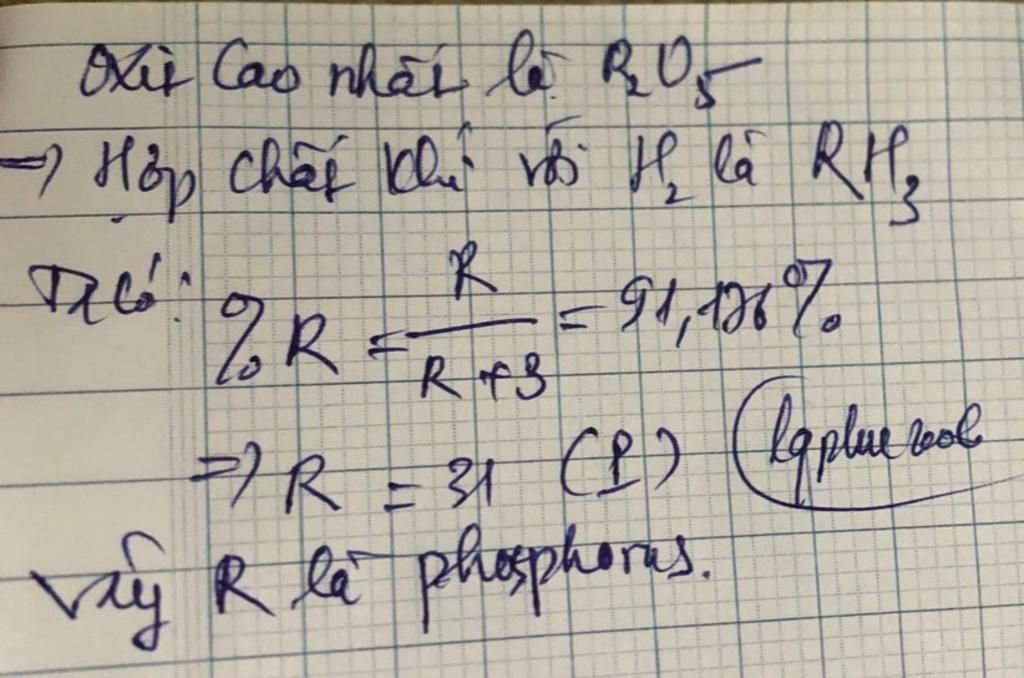 Oxit cao nhất là R₂O₅
=> Hợp chất khí với H₂ là RH₃
Ta có: %R = R / (R + 3) = 91,176%
=> R = 31 (P)
Vậy R là phosphorus.